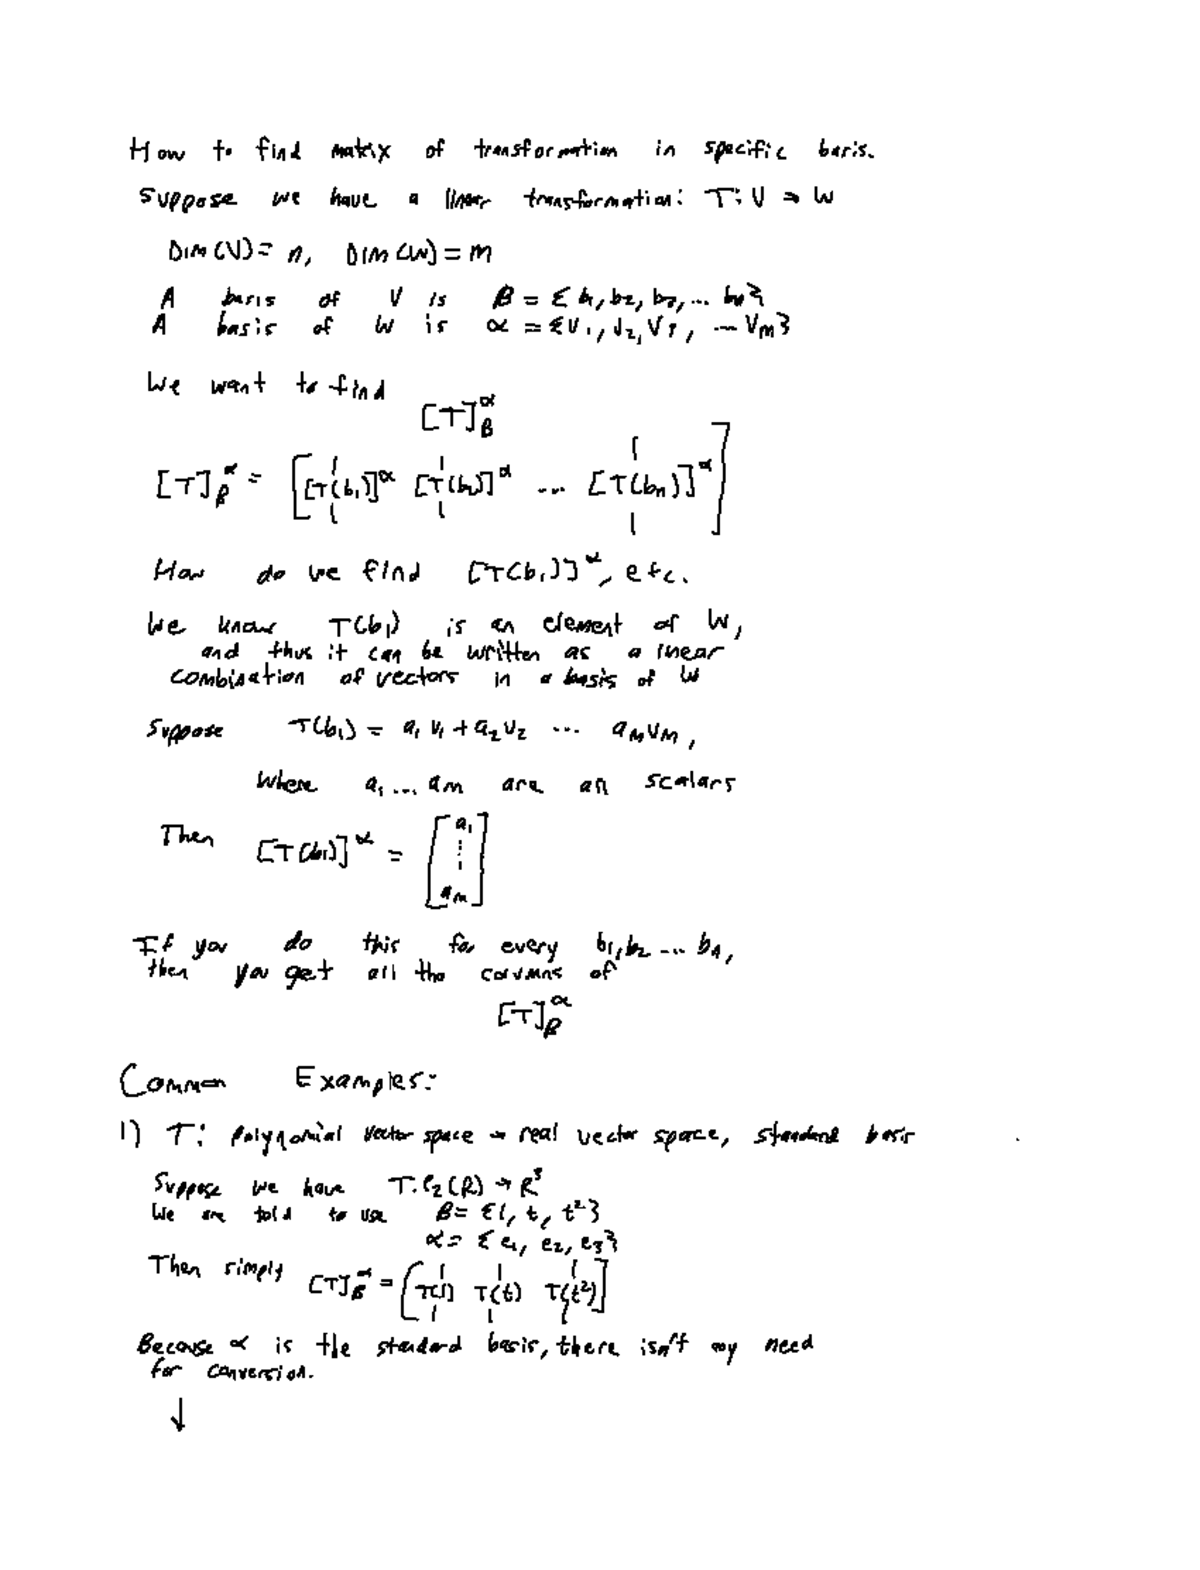 How to find matrix of transformation in specific basis.
Suppose we have a linear transformation: T: V → W
Dim(V) = n, Dim(W) = m
A basis of V is β = {b₁, b₂, b₃, ... bₙ}
A basis of W is α = {v₁, v₂, v₃, ... vₘ}
We want to find
[T]_β^α
[T]_β^α = [[T(b₁)]^α [T(b₂)]^α ... [T(bₙ)]^α]
How do we find [T(b₁)]^α, etc.
We know T(b₁) is an element of W,
and thus it can be written as a linear
combination of vectors in a basis of W
Suppose T(b₁) = a₁v₁ + a₂v₂ ... aₘvₘ,
Where a₁ ... aₘ are all scalars
Then [T(b₁)]^α = [a₁ ⋮ aₘ]
If you do this for every b₁, b₂ ... bₙ,
then you get all the columns of
[T]_β^α
Common Examples:
1) T: Polynomial vector space → real vector space, standard basis
Suppose we have T: P₂(R) → R³
We are told to use β = {1, t, t²}
α = {e₁, e₂, e₃}
Then simply [T]_β^α = [T(1) T(t) T(t²)]
Because α is the standard basis, there isn't any need
for conversion.
↓